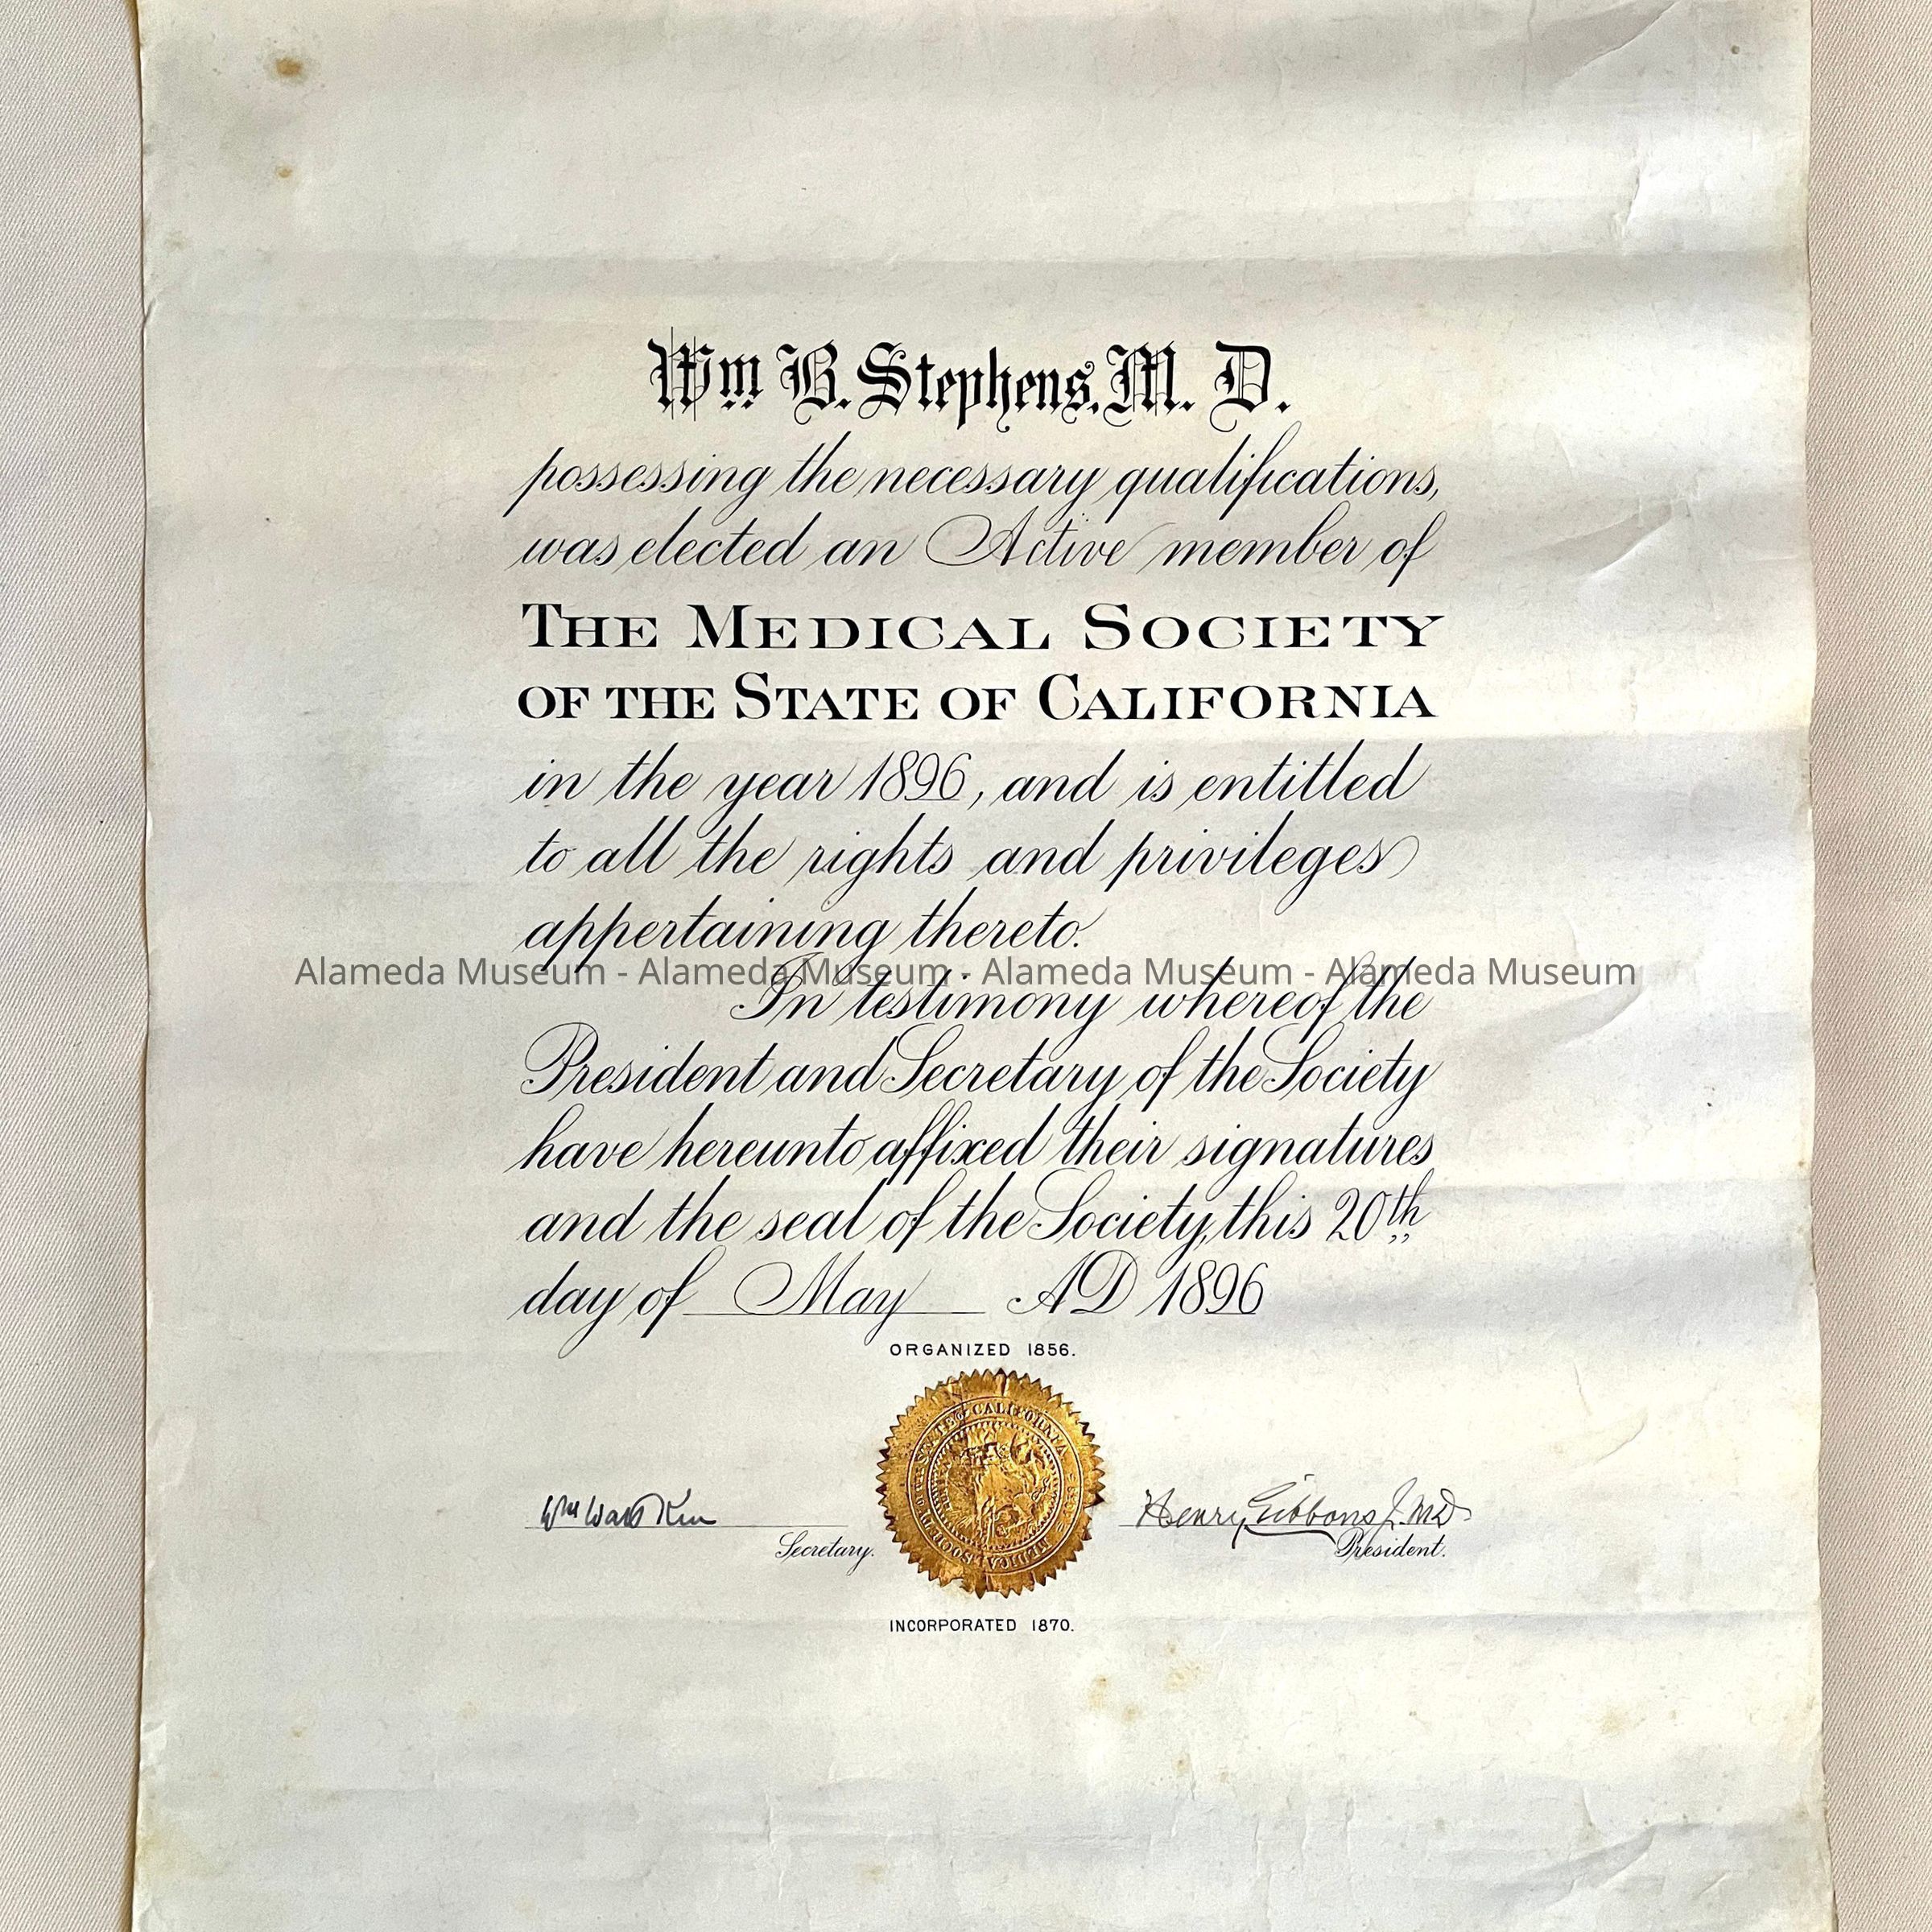 Wm B. Stephens, M. D.
possessing the necessary qualifications,
was elected an Active member of
THE MEDICAL SOCIETY
OF THE STATE OF CALIFORNIA
in the year 1896, and is entitled
to all the rights and privileges
appertaining thereto.
Alameda Museum - Alameda Museum - Alameda Museum - Alameda Museum
In testimony whereof the
President and Secretary of the Society
have hereunto affixed their signatures
and the seal of the Society, this 20th
day of May AD 1896
ORGANIZED 1856.
MEDICAL SOCIETY OF THE STATE OF CALIFORNIA
Wm Watt Kerr
Secretary.
Henry Gibbons Jr. MD
President.
INCORPORATED 1870.